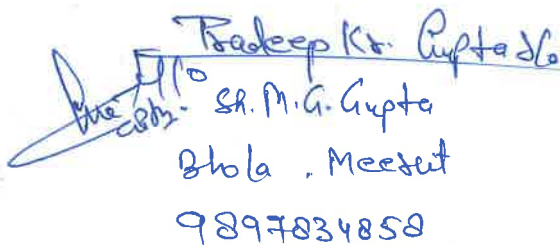 Pradeep Kr. Gupta S/o
Sh. M.G. Gupta
Bhola , Meerut
9897834858